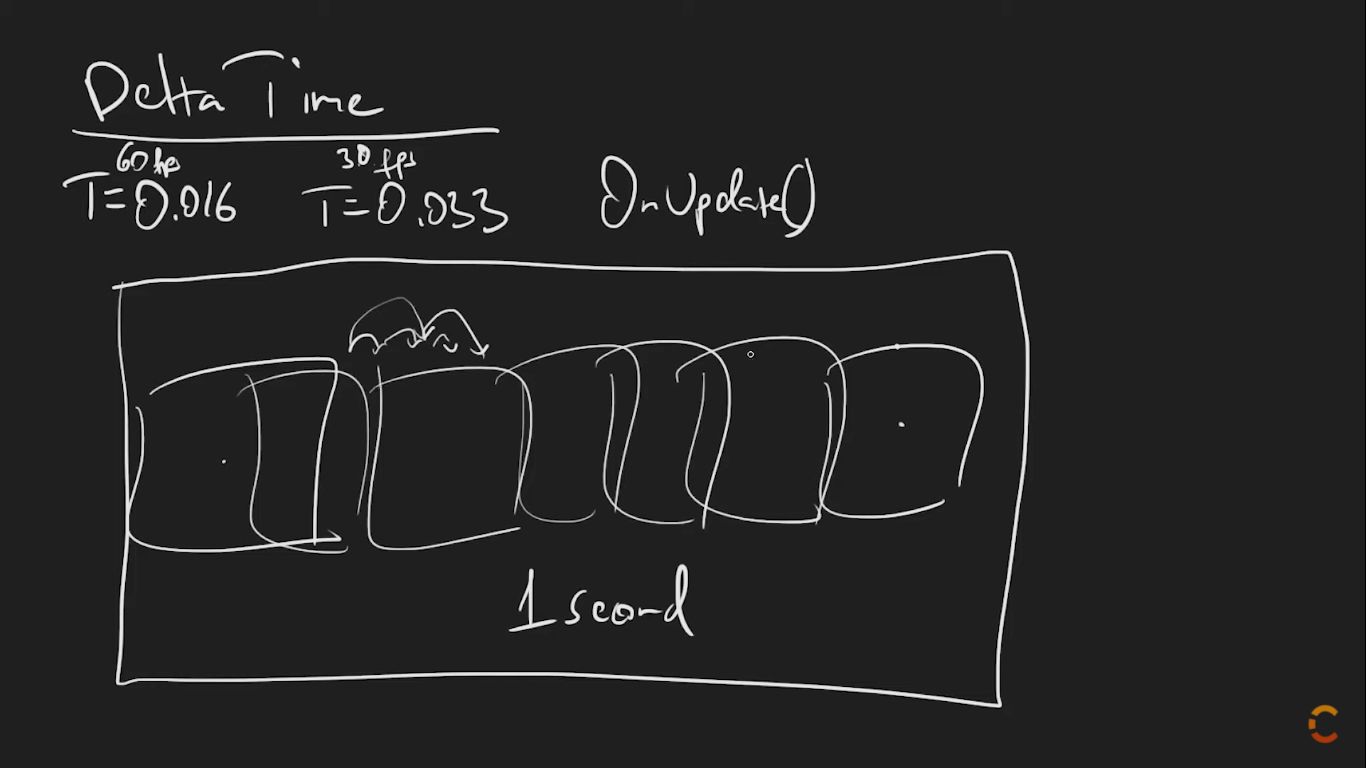 Delta Time
60 fps 30 fps
T=0.016 T=0.033 OnUpdate()
1 second